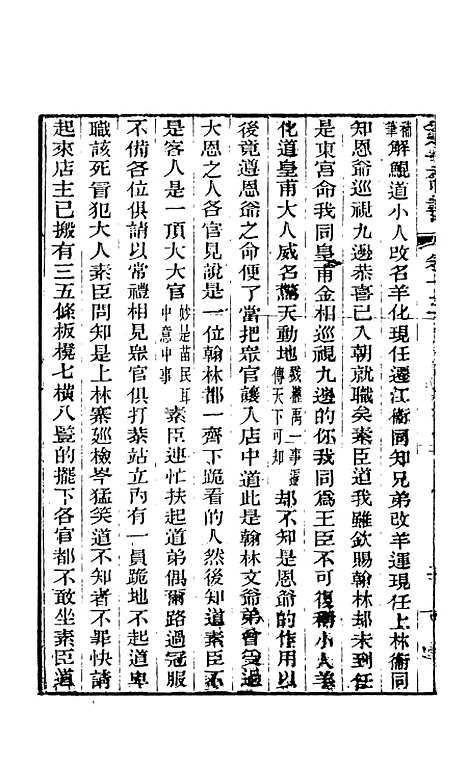 補筆解鯤道小人改名羊化現任遷江衛同知兄弟改羊運現任上林衛同
知恩爺巡視九邊恭喜已入朝就職矣素臣道我雖欽賜翰林却未到任
是東宮命我同皇甫金相巡視九邊的你我同爲王臣不可復稱小人羊
化道皇甫大人威名驚天動地 傳天下可知 却不知是恩爺的作用以
後竟遵恩爺之命便了當把衆官讓入店中道此是翰林文爺弟會受過
大恩之人各官見說是一位翰林都一齊下跪看的人然後知道素臣不
是客人是一頂大大官妙是苗民耳中意中事素臣連忙扶起道弟偶爾路過冠服
不備各位俱請以常禮相見衆官俱打恭站立內有一員跪地不起道卑
職該死冒犯大人素臣問知是上林寨巡檢岑猛笑道不知者不罪快請
起來店主已搬有三五條板櫈七橫八豎的擺下各官都不敢坐素臣道